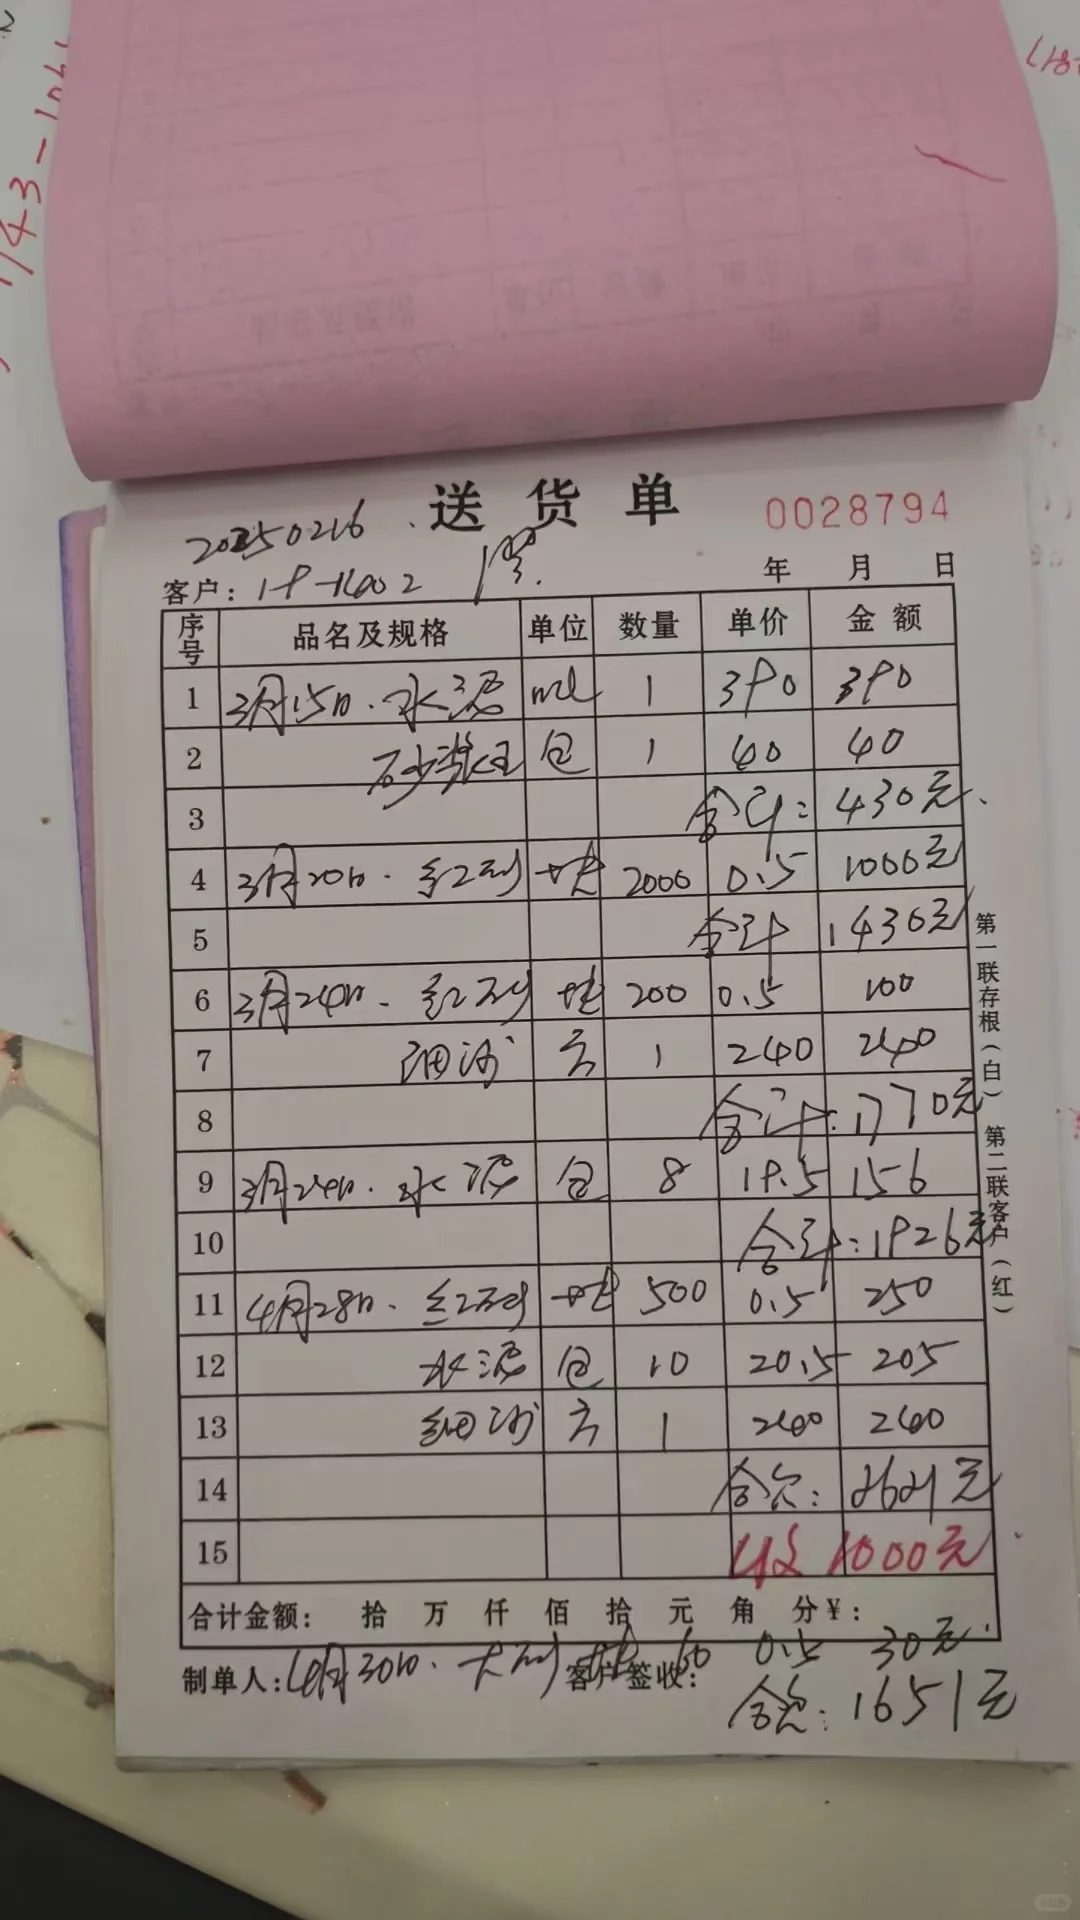 143-106
送货单
0028794
20250216
客户: 1-P-1602
年 月 日
序号 品名及规格 单位 数量 单价 金额
1 3月15日. 水泥 1 390 390
2 砂浆王 包 1 40 40
3 合计: 430元
4 3月20日. 红砖 块 2000 0.5 1000元
5 合计 1430元
6 3月24日. 红砖 块 200 0.5 100
7 细沙 方 1 240 240
8 合计: 1770元
9 3月24日. 水泥 包 8 19.5 156
10 合计: 1926元
11 4月28日. 红砖 块 500 0.5 250
12 水泥 包 10 20.5 205
13 细沙 方 1 240 240
14 合欠: 2621元
15 收 1000元
合计金额: 拾 万 仟 佰 拾 元 角 分 ¥:
制单人: 客户签收:
4月30日. 砖 块 60 0.5 30元.
合欠: 1651元
第一联存根(白) 第二联客户(红)